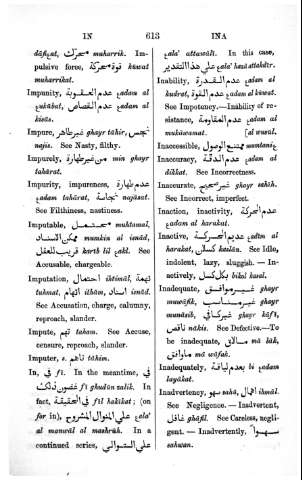 IN 613 INA
dāfiɛat, محرك muharrik. Im-
pulsive force, قوة محركة kūwat
muharrikat.
Impunity, عدم العقوبة ɛadam al
ɛukūbat, عدم القصاص ɛadam al
kisās.
Impure, غير طاهر ghayr tāhir, نجس
najis. See Nasty, filthy.
Impurely, من غير طهارة min ghayr
tahārat.
Impurity, impureness, عدم طهارة
ɛadam tahārat, نجاسة najāsat.
See Filthiness, nastiness.
Imputable, محتمل muhtamal,
ممكن الاسناد mumkin al isnād,
قريب للعقل karīb lil ɛakl. See
Accusable, chargeable.
Imputation, احتمال ihtimāl, تهمة
tuhmat, اتهام ithām, اسناد isnād.
See Accusation, charge, calumny,
reproach, slander.
Impute, تهم taham. See Accuse,
censure, reproach, slander.
Imputer, s. تاهم tāhim.
In, في fī. In the meantime, في
غضون ذلك fī ghudūn zalik. In
fact, في الحقيقة fīl hakīkat; (on
far in), على المنوال المشروح ɛala'
al manwāl al mashrūh. In a
continued series, على التوالي
ɛala' attawālī. In this case,
على هذا التقدير ɛala' hazā attakdīr.
Inability, عدم القدرة ɛadam al
kudrat, عدم القوة ɛadam al kūwat.
See Impotency.—Inability of re-
sistance, عدم المقاومة ɛadam al
mukāwamat. [al wusūl.
Inaccessible, ممتنع الوصول mumtaniɛ
Inaccuracy, عدم الدقة ɛadam al
dikkat. See Incorrectness.
Inaccurate, غير صحيح ghayr sahīh.
See Incorrect, imperfect.
Inaction, inactivity, عدم الحركة
ɛadam al harakat.
Inactive, عديم الحركة ɛadīm al
harakat, كسلان kaslān. See Idle,
indolent, lazy, sluggish. — In-
actively, بكل كسل bikol kasal.
Inadequate, غير موافق ghayr
muwāfik, غير مناسب ghayr
munāsib, غير كافي ghayr kāfī,
ناقص nākis. See Defective.—To
be inadequate, ما لاق mā lāk,
ما وافق mā wāfak.
Inadequately, بعدم لياقة bi ɛadam
layākat.
Inadvertency, سهو sahū, اهمال ihmāl.
See Negligence. — Inadvertent,
غافل ghāfil. See Careless, negli-
gent. — Inadvertently, سهوا
sahwan.